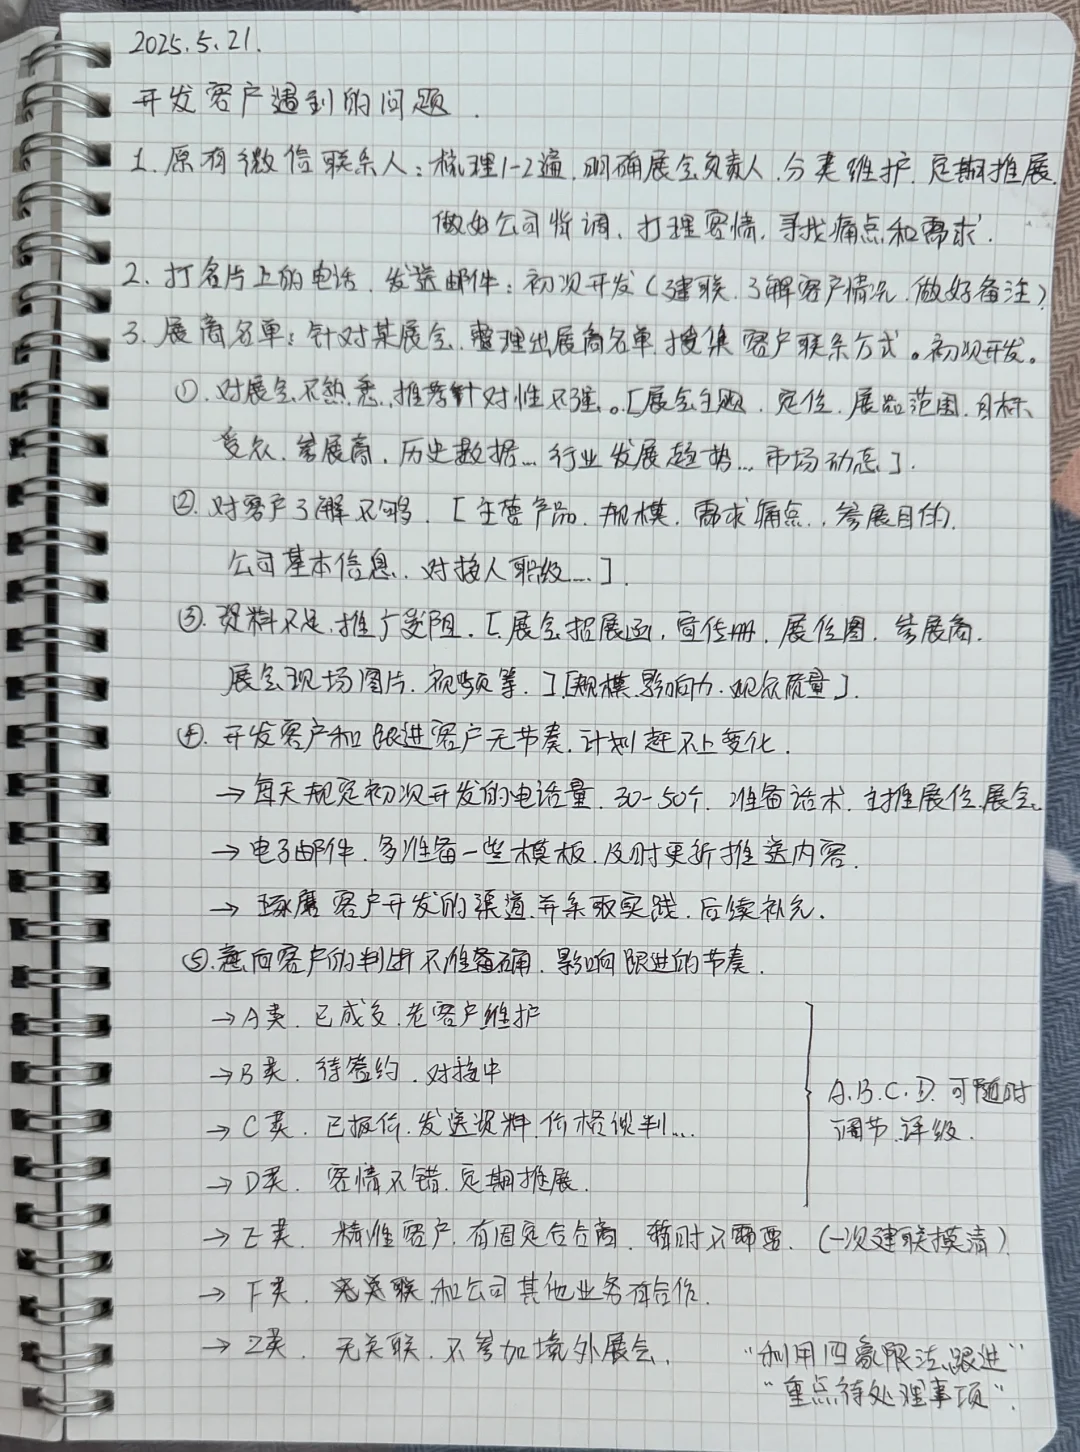 2025.5.21.
开发客户遇到的问题.
1. 原有微信联系人：梳理1-2遍.明确展会负责人.分类维护.定期推展.
做好公司背调、打理客情.寻找痛点和需求.
2. 打名片上的电话.发送邮件：初次开发（建联.了解客户情况.做好备注）
3. 展商名单：针对某展会.整理出展商名单.搜集客户联系方式。初次开发。
①.对展会不熟悉.推荐针对性不强。[展会主题.定位.展品范围.目标
受众.参展商.历史数据...行业发展趋势...市场动态].
②.对客户了解不够.[主营产品.规模.需求痛点.参展目的.
公司基本信息.对接人职级....].
③.资料不足.推广受阻.[展会招展函.宣传册.展位图.参展商.
展会现场图片.视频等.][规模.影响力.观众质量].
④.开发客户和跟进客户无节奏.计划赶不上变化.
→每天规定初次开发的电话量.30-50个.准备话术.主推展位.展会.
→电子邮件.多准备一些模板.及时更新推送内容.
→琢磨客户开发的渠道.并采取实践.后续补充.
⑤.意向客户的判断不准备确.影响跟进的节奏.
→A类.已成交.老客户维护
→B类.待签约.对接中
→C类.已报价.发送资料.价格谈判...
→D类.客情不错.定期推展.
A.B.C.D.可随时
调节.评级.
→E类.精准客户.有固定合合商.暂时不需要.（一次建联摸清）
→F类.无关联.和公司其他业务有合作.
→Z类.无关联.不参加境外展会.
“利用四象限法跟进”
“重点待处理事项”.